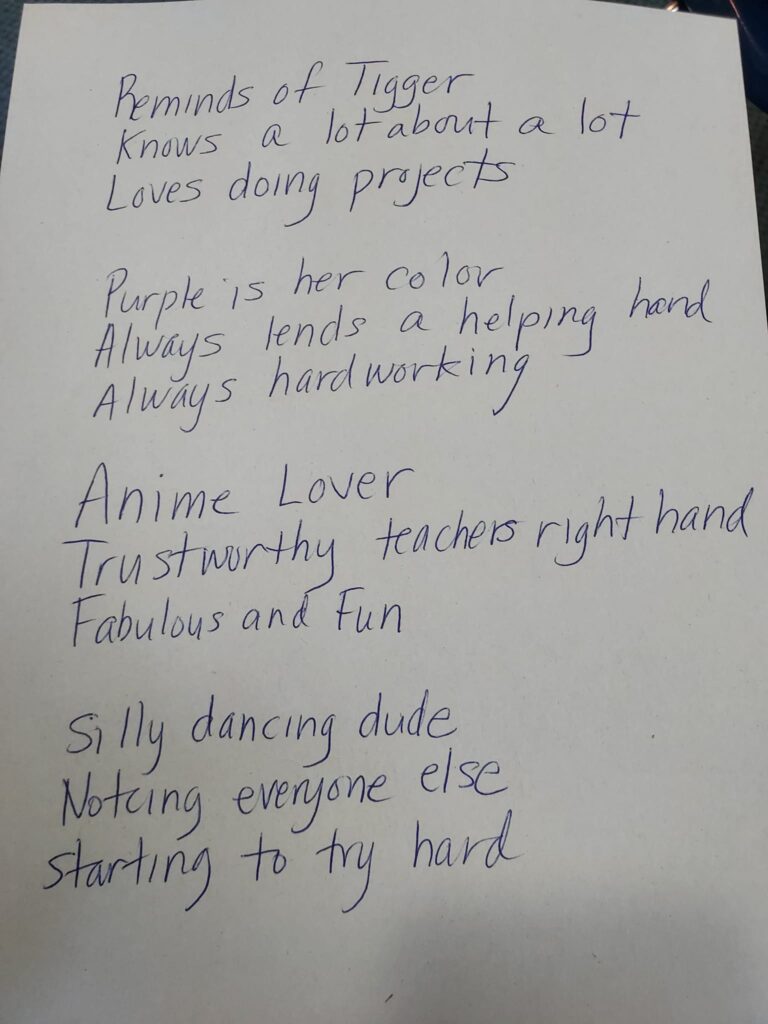 Reminds of Tigger
Knows a lot about a lot
Loves doing projects
Purple is her color
Always lends a helping hand
Always hardworking
Anime Lover
Trustworthy teachers right hand
Fabulous and Fun
Silly dancing dude
Notcing everyone else
starting to try hard